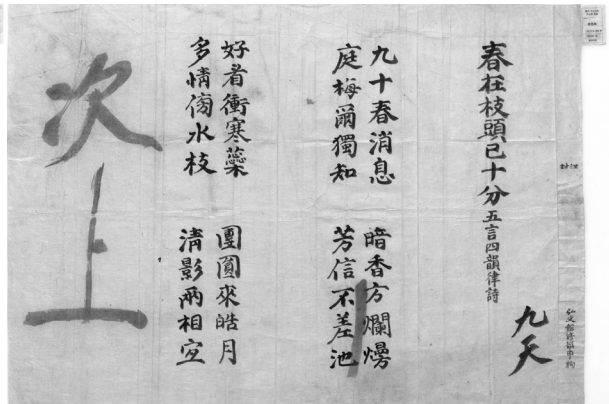 九天
春在枝頭已十分 五言四韻律詩
九十春消息
庭梅爾獨知
暗香方爛熳
芳信不差池
好看衝寒蘂
多情傍水枝
團圓來皓月
清影兩相宜
次上